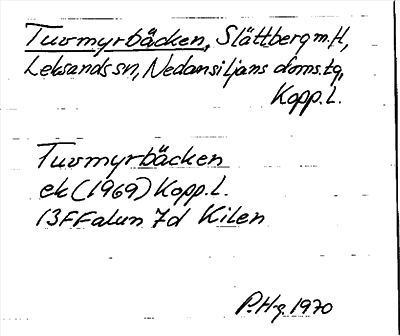 Tuvmyrbäcken, Slättberg m.fl,
Leksands sn, Nedansiljans doms.tg,
Kopp.l.
Tuvmyrbäcken
ek (1969) Kopp.l.
13F Falun 7d Kilen
P.H-g. 1970